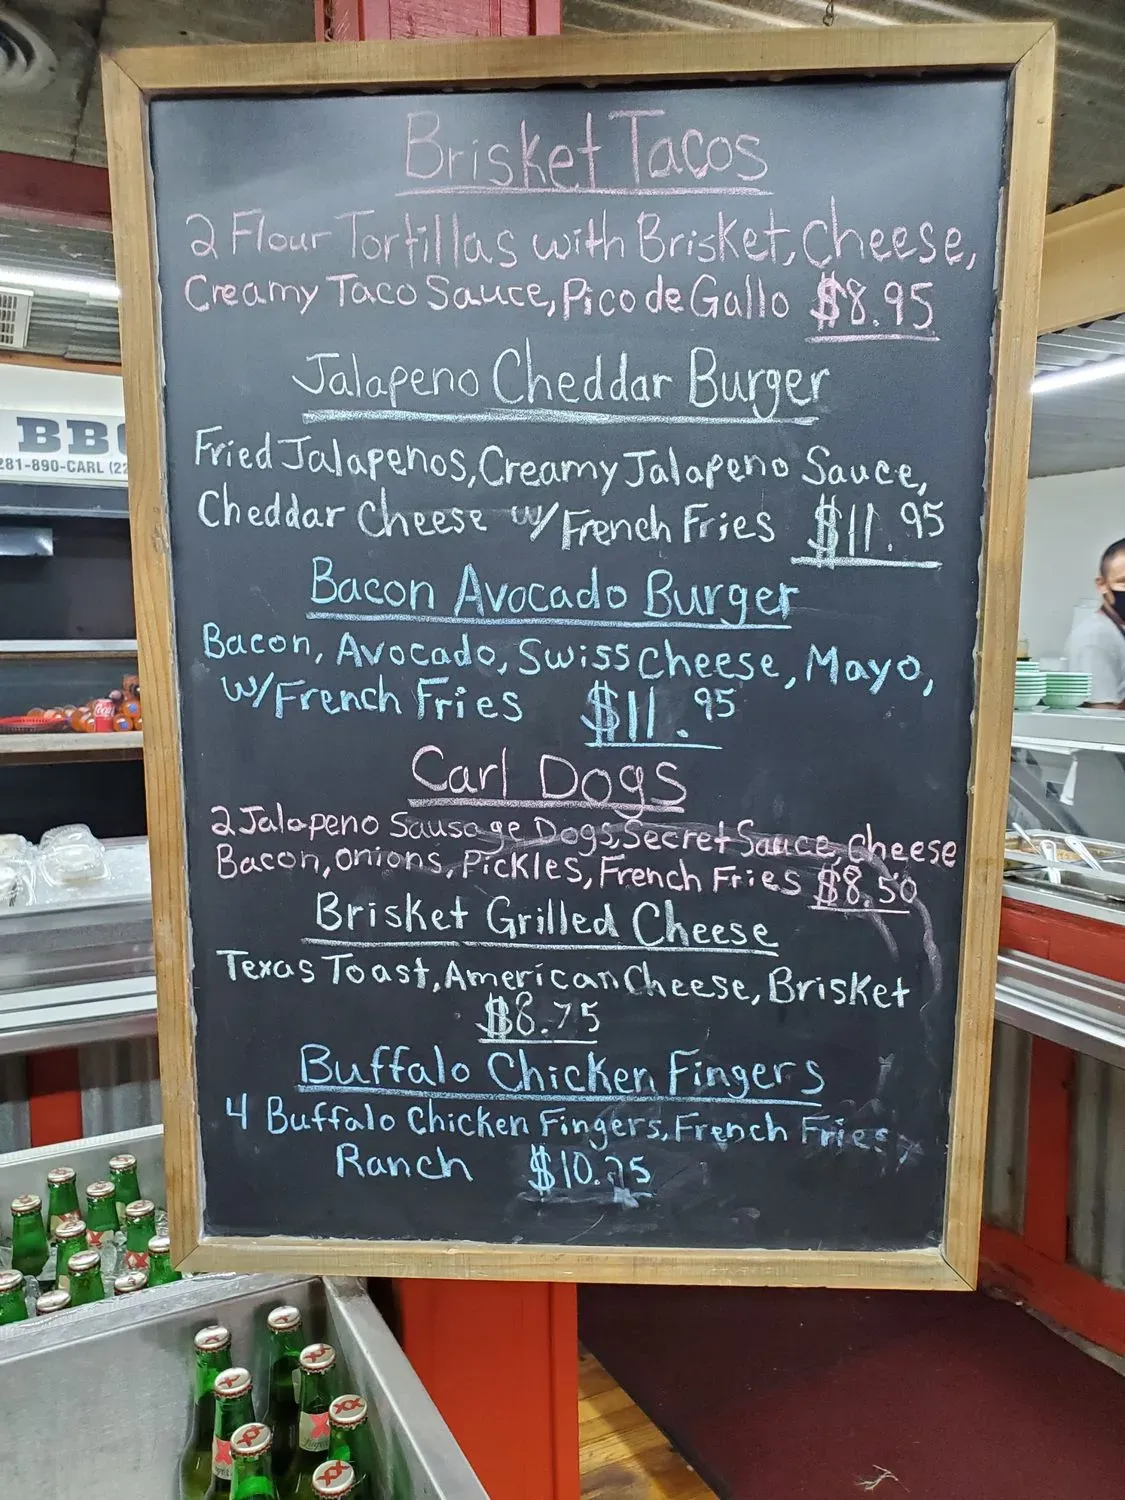 Brisket Tacos
2 Flour Tortillas with Brisket, Cheese,
Creamy Taco Sauce, Pico de Gallo $8.95
Jalapeno Cheddar Burger
Fried Jalapenos, Creamy Jalapeno Sauce,
Cheddar Cheese w/French Fries $11.95
Bacon Avocado Burger
Bacon, Avocado, Swiss Cheese, Mayo,
w/French Fries $11.95
Carl Dogs
2 Jalapeno Sausage Dogs, Secret Sauce, Cheese
Bacon, Onions, Pickles, French Fries $8.50
Brisket Grilled Cheese
Texas Toast, American Cheese, Brisket
$8.75
Buffalo Chicken Fingers
4 Buffalo Chicken Fingers, French Fries,
Ranch $10.75
BB
281-890-CARL (22
XX
XX
XX
XX
XX